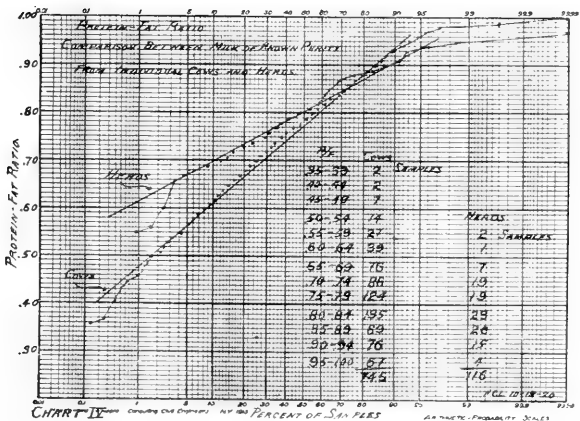 PROTEIN-FAT RATIO
COMPARISON BETWEEN MILK OF KNOWN PURITY
FROM INDIVIDUAL COWS AND HERDS.
PROTEIN-FAT RATIO.
1.00
.90
.80
.70
.60
.50
.40
.30
HERDS
COWS
P/F COWS
.35-39 2 SAMPLES
40-44 2
45-49 7 HERDS.
.50-54 14
.55-59 27 2 SAMPLES.
60-64 39 1
.65-69 76 7
.70-74 86 19
75-79 124 19
80-84 29
85-89 69 20
90-94 76 15
95-100 67 4
745 116
10-18-20
CHART IV
PERCENT OF SAMPLES
ARITHMETIC-PROBABILITY SCALES